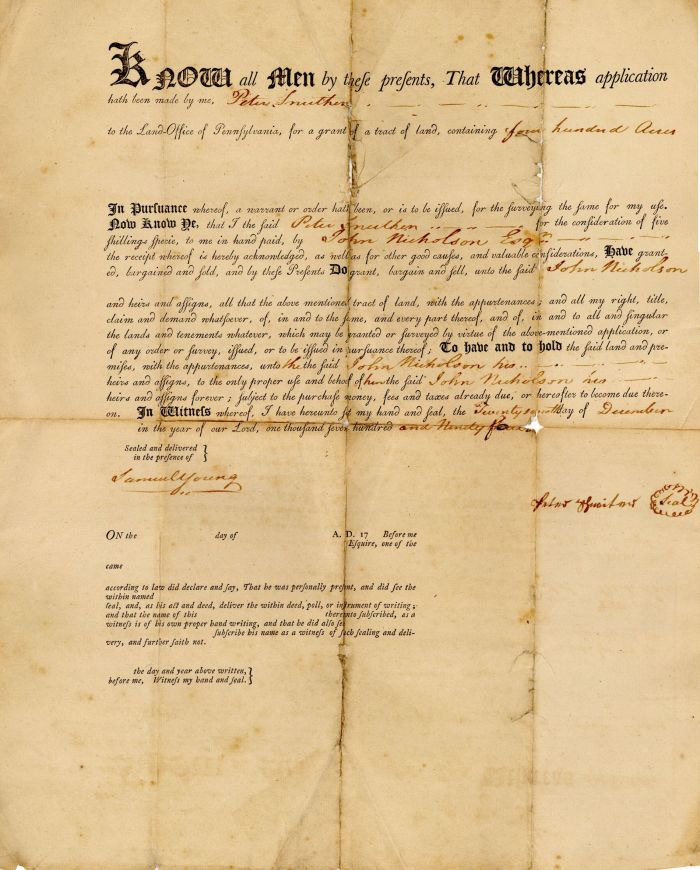 KNOW all Men by these presents, That Whereas application
hath been made by me, Peter Smither
to the Land-Office of Pennsylvania, for a grant of a tract of land, containing four hundred Acres
In Pursuance whereof, a warrant or order hath been, or is to be issued, for the surveying the same for my use.
Now Know Ye, that I the said Peter Smither for the consideration of five
shillings specie, to me in hand paid, by John Nicholson Esqr
the receipt whereof is hereby acknowledged, as well as for other good causes, and valuable considerations, Have grant-
ed, bargained and sold, and by these Presents Do grant, bargain and sell, unto the said John Nicholson
and heirs and assigns, all that the above mentioned tract of land, with the appurtenances; and all my right, title,
claim and demand whatsoever, of, in and to the same, and every part thereof, and of, in and to all and singular
the lands and tenements whatever, which may be granted or surveyed by virtue of the above-mentioned application, or
of any order or survey, issued, or to be issued in pursuance thereof; To have and to hold the said land and pre-
mises, with the appurtenances, unto the said John Nicholson his
heirs and assigns, to the only proper use and behoof of him the said John Nicholson his
heirs and assigns forever; subject to the purchase money, fees and taxes already due, or hereafter to become due there-
on. In Witness whereof, I have hereunto set my hand and seal, the day of December
in the year of our Lord, one thousand seven hundred and Ninety four
Sealed and delivered
in the presence of }
Samuel Young
Peter Seal
ON the day of A. D. 17 Before me
Esquire, one of the
came
according to law did declare and say, That he was personally present, and did see the
within named
seal, and, as his act and deed, deliver the within deed, poll, or instrument of writing;
and that the name of this thereunto subscribed, as a
witness is of his own proper hand writing, and that he did also see
subscribe his name as a witness of such sealing and deli-
very, and further saith not.
the day and year above written,
before me, Witness my hand and seal. }